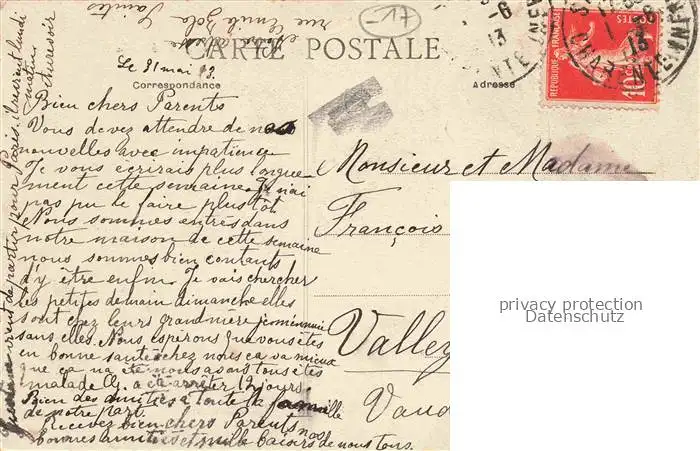 Saintes
rue Emile Zola
notre adresse
-17
CARTE POSTALE
Le 31 mai 13.
Correspondance
Adresse
POSTES
REPUBLIQUE FRANÇAISE
10
Bien chers Parents
Vous devez attendre de nos
nouvelles avec impatience
Je vous écrirais plus longue
ment cette semaine Je n'ai
pas pu le faire plus tôt
Nous sommes entrés dans
notre maison de cette semaine
nous sommes bien contants
d'y être enfin. Je vais chercher
les petites demain dimanche elles
sont chez leurs grandmère je m'ennuie
sans elles. Nous esperons que vous êtes
en bonne santé chez nous ca va mieux
que ça na été nous avons tous étés
malade a été arrêter 12 jours
Bien des amitiés à toute la famille
de notre part.
Recevez bien chers Parents nos
bonnes amitiés et mille baisers de nous tous.
vient de partir pour Paris. Revient lundi
matin
Monsieur et Madame
François
Valley
Vaud
privacy protection
Datenschutz